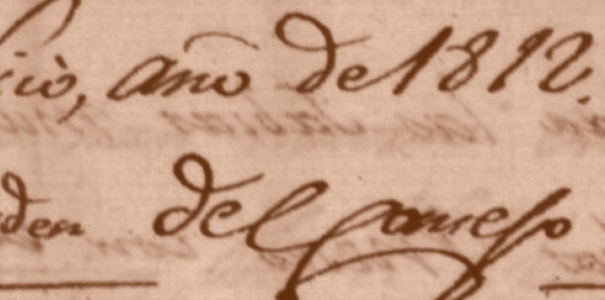 ciò, año de 1812.
den del Consejo